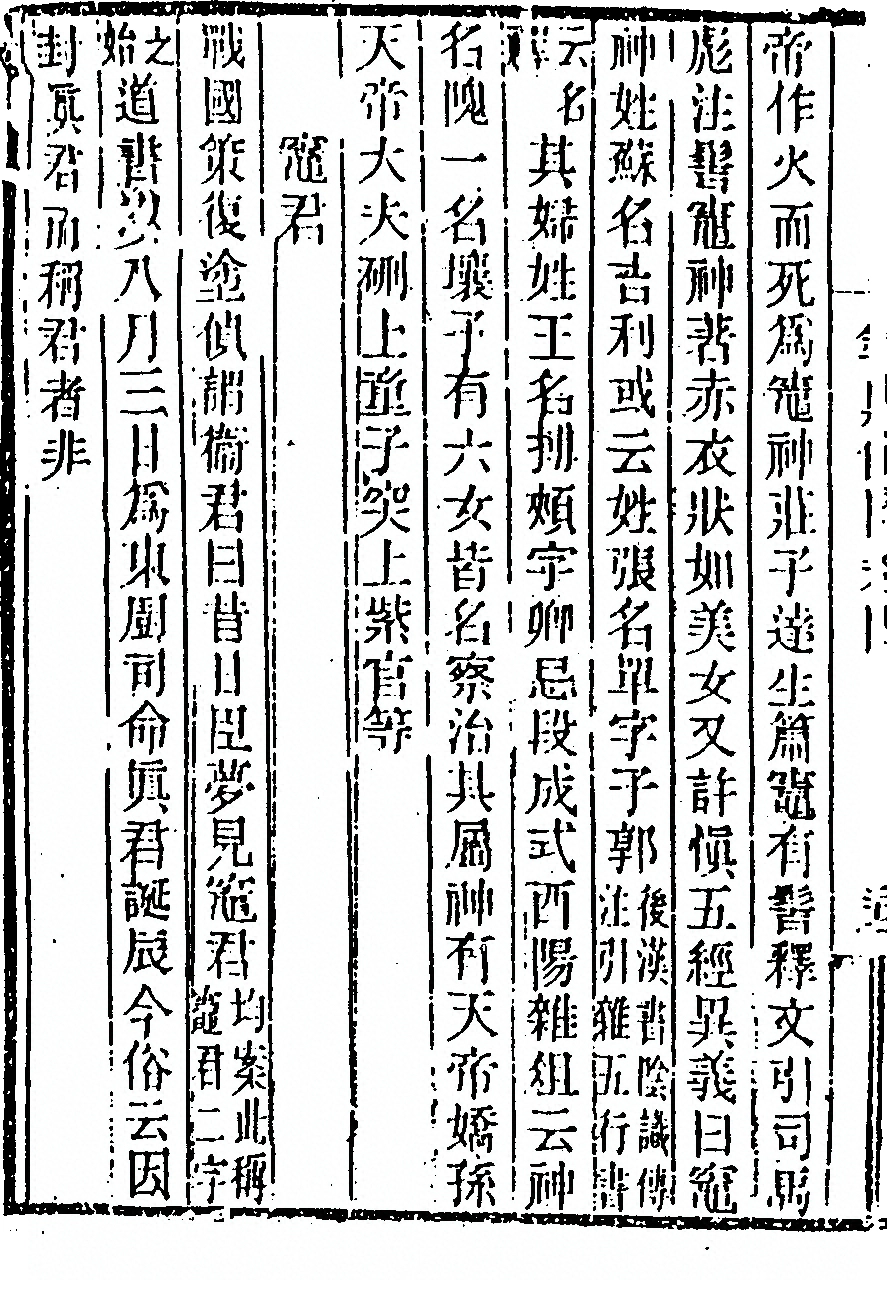 帝作火而死為竈神莊子達生篇竈有髻釋文引司馬
彪注髻竈神著赤衣狀如美女又許慎五經異義曰竈
神姓蘇名吉利或云姓張名單字子郭後漢書陰識傳注引雜五行書
云名其婦姓王名搏頰字卿忌段成式酉陽雜俎云神
名隗一名壤子有六女皆名察治其屬神有天帝嬌孫
天帝大夫硎上童子突上紫官等
竈君
戰國策復塗偵謂衞君曰昔日臣夢見竈君均案此稱竈君二字
之始道書以八月三日為東廚司命真君誕辰今俗云因
封真君而稱君者非